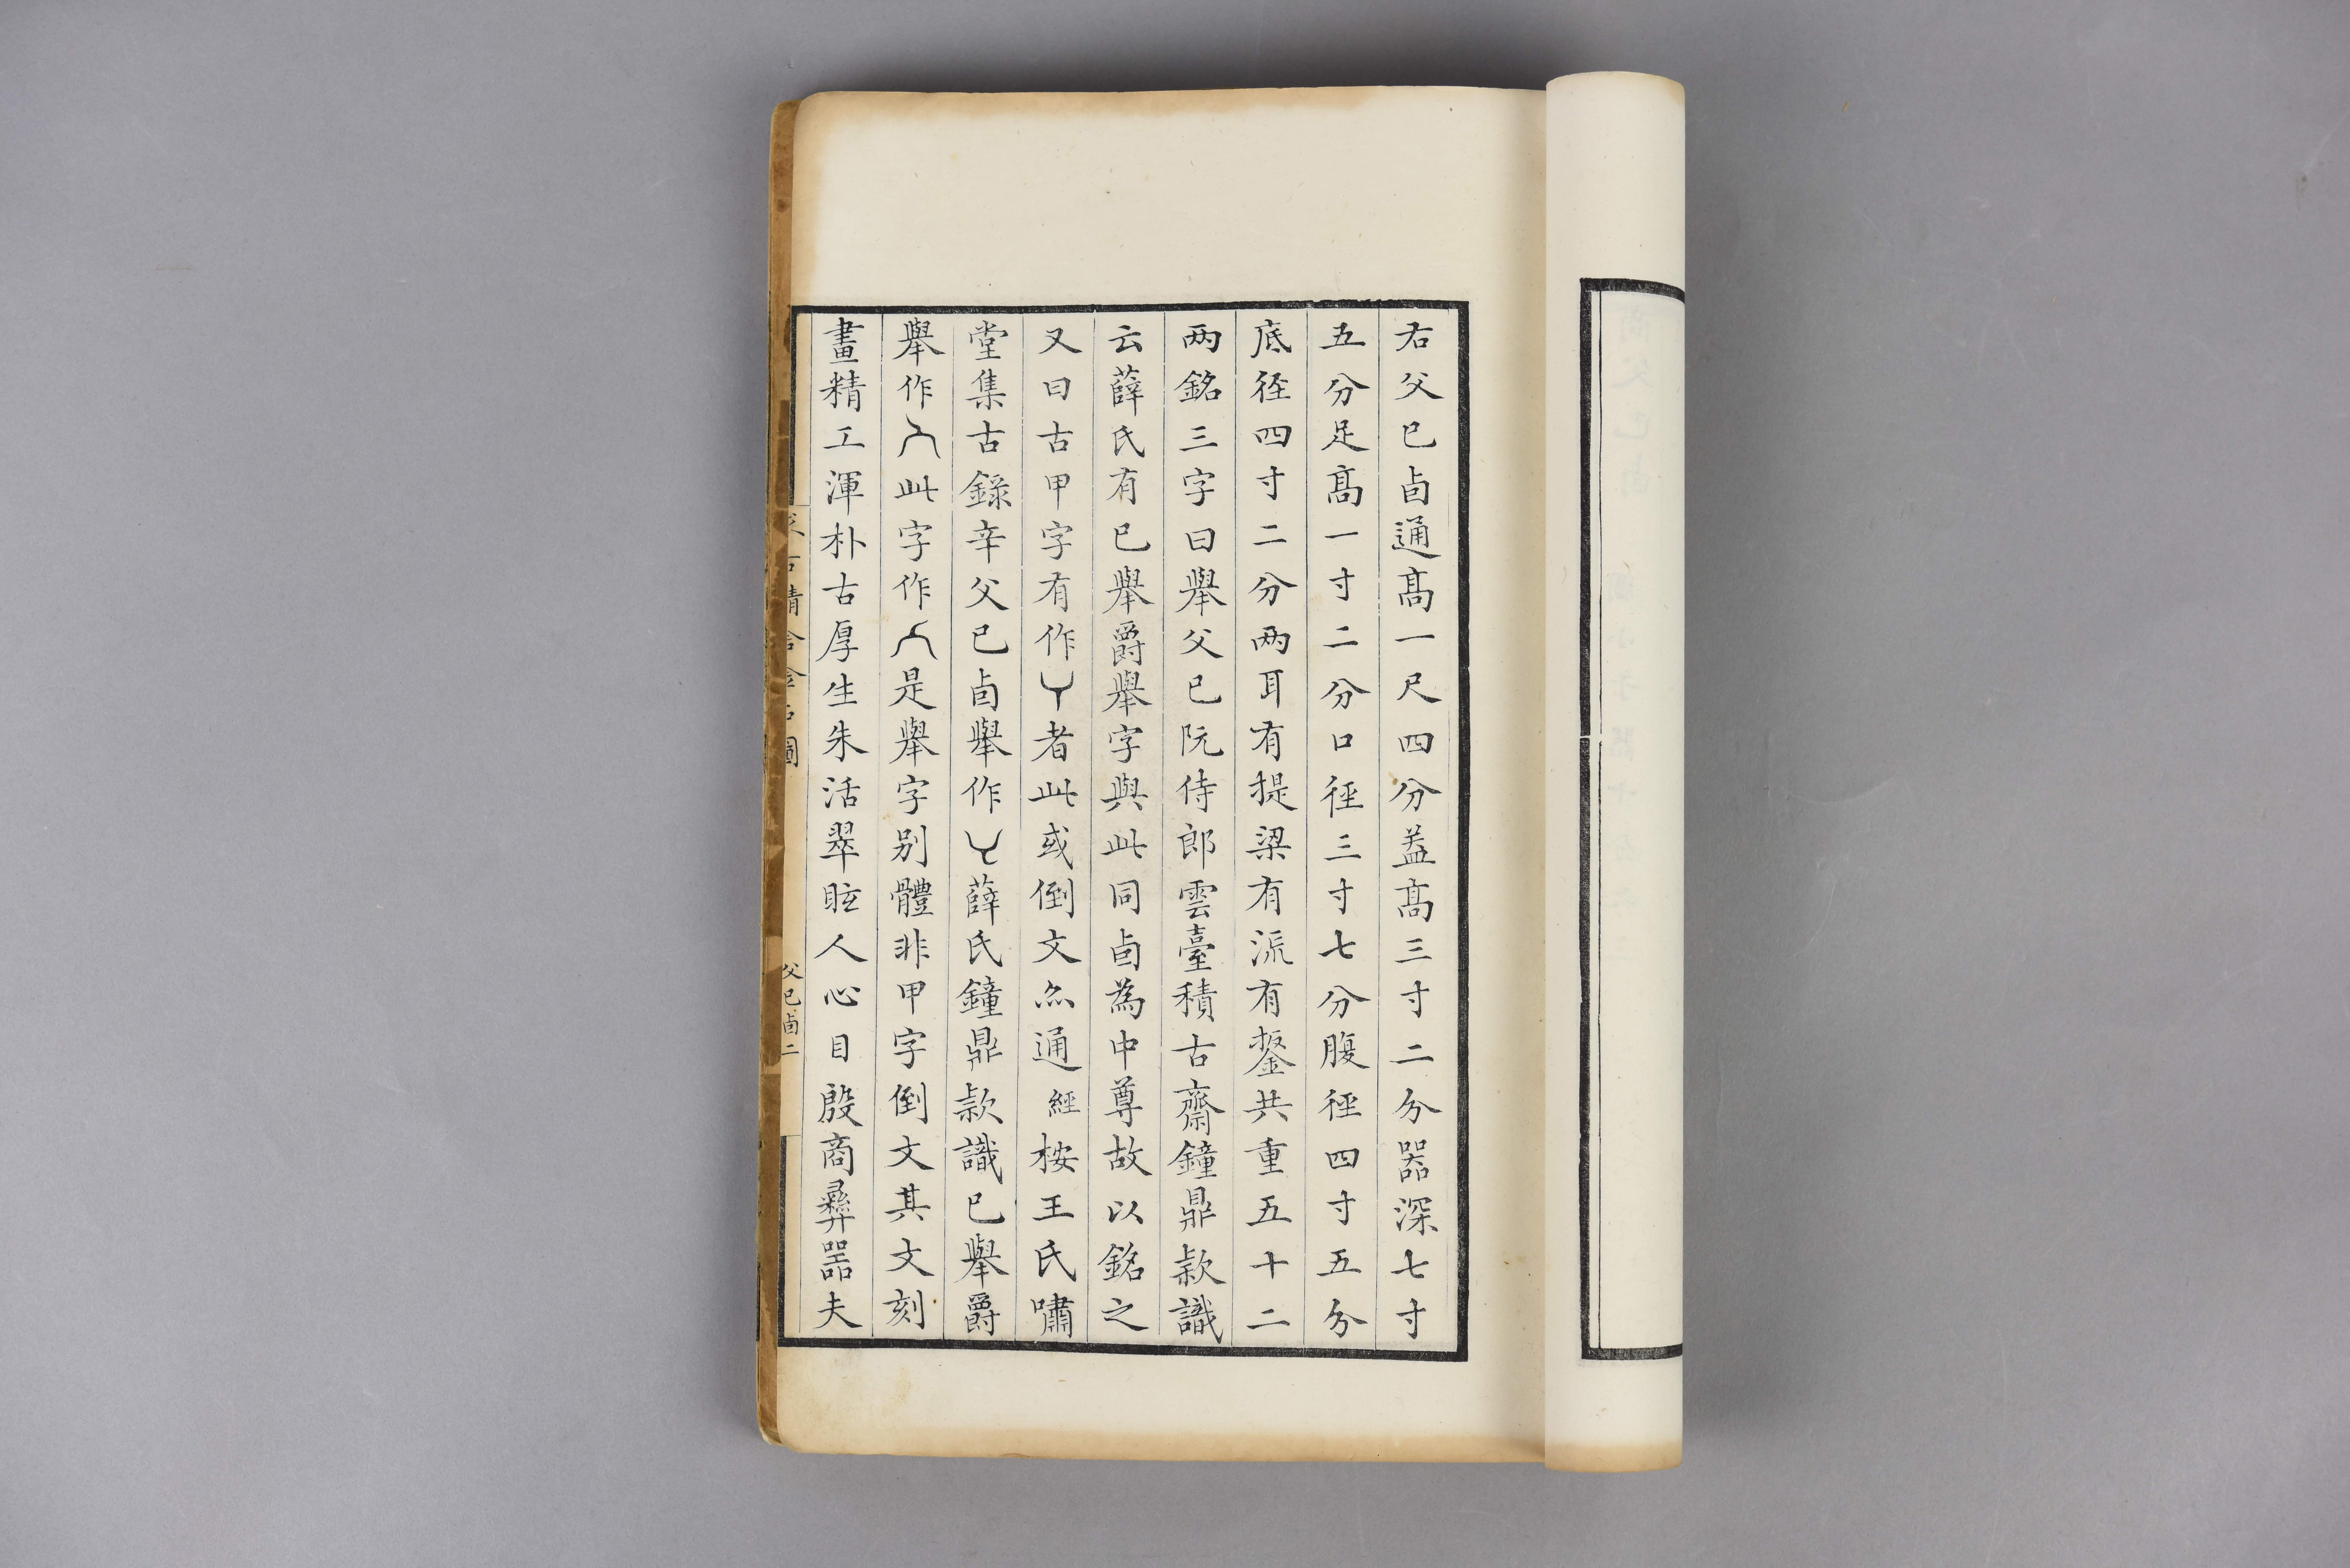 右父已卣通髙一尺四分葢髙三寸二分器深七寸
五分足髙一寸二分口徑三寸七分腹徑四寸五分
底徑四寸二分两耳有提梁有流有鋬共重五十二
两銘三字曰舉父已阮侍郎雲臺積古齋鐘鼎款識
云薛氏有已舉爵舉字與此同卣為中尊故以銘之
又曰古甲字有作者此或倒文亦通經桉王氏嘯
堂集古錄辛父已卣舉作薛氏鐘鼎款識已舉爵
舉作此字作是舉字别體非甲字倒文其文刻
畫精工渾朴古厚生朱活翠眩人心目殷商彝器夫
求古精舍金石圖
父已卣二